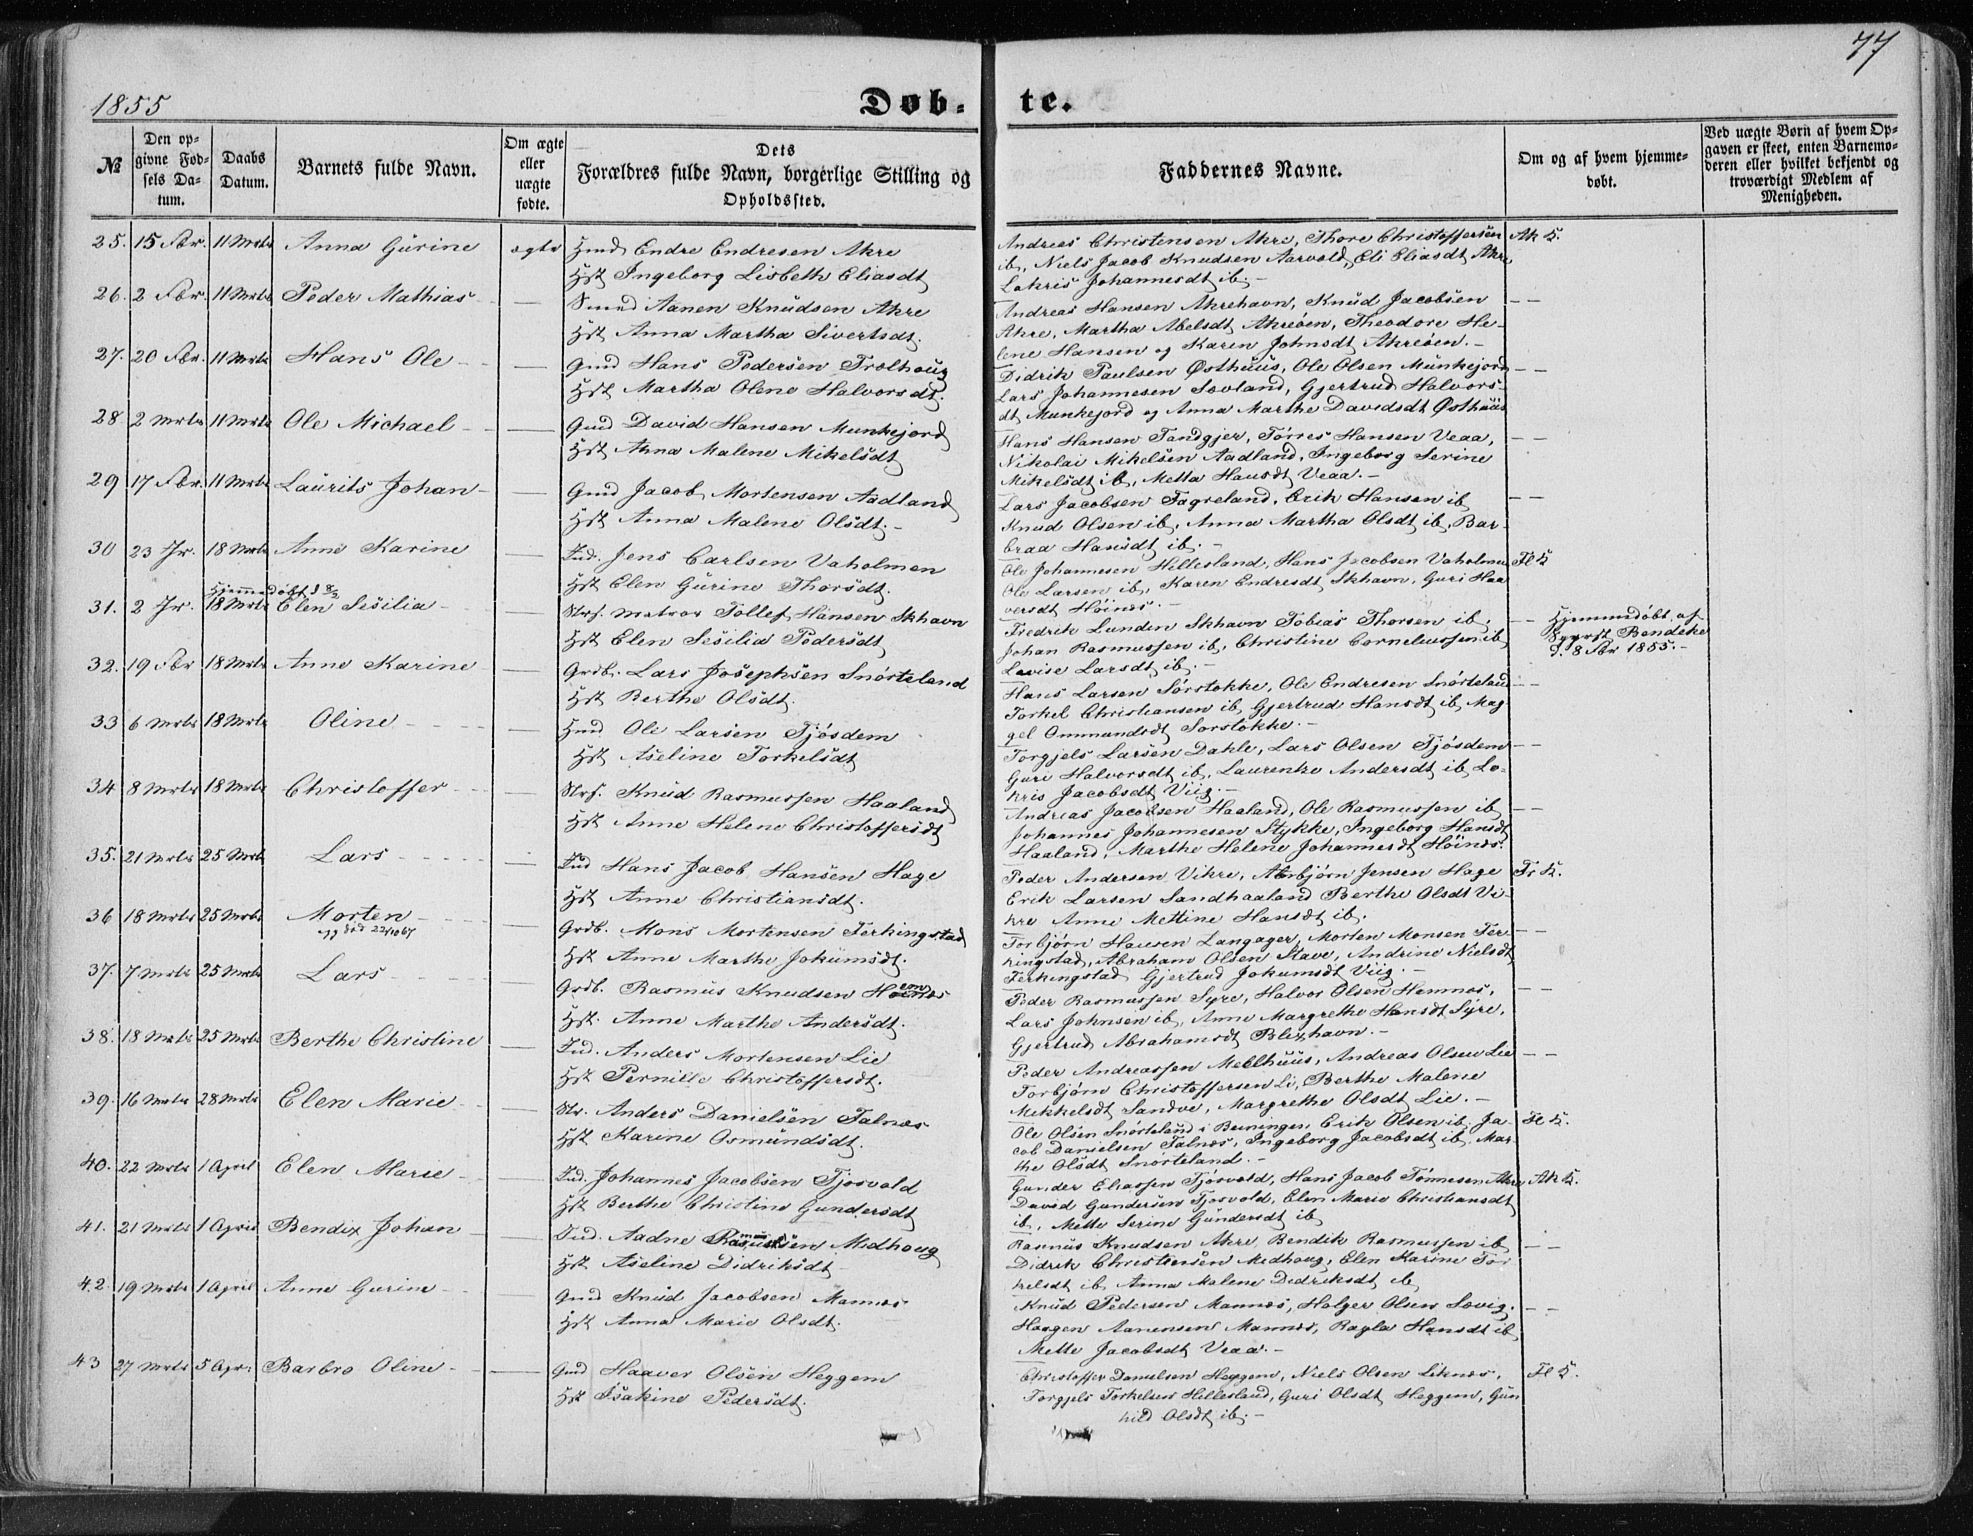 77
1855
Døb-
te.
№
Den opgivne Fødsels Datum.
Daabs Datum.
Barnets fulde Navn.
Om ægte eller uægte fødte.
Dets Forældres fulde Navn, borgerlige Stilling og Opholdssted.
Faddernes Navne.
Om og af hvem hjemmedøbt.
Ved uægte Børn af hvem Opgaven er skeet, enten Barnemoderen eller hvilket bekjendt og troværdigt Medlem af Menigheden.
25. 15 Fbr. 11 Mrts Anna Gurine ægte Hmd Endre Endresen Akre
Hst Ingeborg Lisbeth Eliasdt
Andreas Christensen Akre, Thore Christoffersen Ak K.
ib, Niels Jacob Knudsen Aarvold, Eli Eliasdt Akre,
Lakris Johannesdt ib.-
26. 2 Fbr. 11 Mrts Peder Mathias - — Smed Aanen Knudsen Akre
Hst Anna Martha Sivertsdt.
Andreas Hansen Akrehavn, Knud Jacobsen - -
Akre, Martha Abelsdt Akreøen, Theodore He-
lene Hansen og Karen Johnsdt Akreøen.-
27. 20 Fbr. 11 Mrts Hans Ole - - — Gmd Hans Pedersen Trælhoug
Hst Martha Olene Halvorsdt.
Didrik Paulsen Østhuus, Ole Olsen Munkejord - -
Lars Johannesen Sævland, Gjertrud Halvors-
dt Munkejord og Anna Marthe Davidsdt Østhuus
28 2 Mrts 11 Mrts Ole Michael - - — Gmd David Hansen Munkejord
Hst Anna Malene Mikelsdt
Hans Hansen Tandgjer, Tørres Hansen Veaa, - -
Nikolai Mikelsen Aadland, Ingeborg Serine
Mikelsdt ib, Metta Hansdt Veaa.-
29 17 Fbr. 11 Mrts Laurits Johan - — Gmd Jacob Mortensen Aadland
Hst Anna Malene Olsdt.-
Lars Jacobsen Fagreland, Erik Hansen ib - -
Knud Olsen ib, Anna Martha Olsdt ib, Bar-
braa Hansdt ib.-
30 23 Jr. 18 Mrts Anne Karine — Ind. Jens Carlsen Vaholmen
Hst Elen Gurine Thorsdt.
Ole Johannesen Hillesland, Hans Jacobsen Vaholmen Fl K
Ole Larsen ib, Karen Endresdt Skhavn, Guri Haa
versdt Høines.-
Hjemmedøbt d 8/2
31. 2 Jr. 18 Mrts Elen Sesilia - - — Strf. matros Tollef Hansen Skhavn
Hst Elen Sesilia Pedersdt
Fredrik Lunden Skhavn Tobias Thorsen ib. - - Hjemmedøbt af
Johan Rasmussen ib, Christine Corneliussen ib Bendeke
Lovise Larsdt ib.- d. 8 Fbr 1855.-
32. 19 Fbr 18 Mrts Anne Karine - — Grdb. Lars Josephsen Snørteland
Hst Berthe Olsdt.
Hans Larsen Sørstokke, Ole Endresen Snørteland - -
Torkel Christiansen ib, Gjertrud Hansdt ib, Mag
gel Ommundsdt Sørstokke.-
33 6 Mrts 18 Mrts Oline - - - — Hmd Ole Larsen Tjøsdem
Hst Aseline Torkelsdt
Torgjels Larsen Dahle, Lars Olsen Tjøsdem - -
Guri Halvorsdt ib, Laurenke Andersdt ib, La-
kris Jacobsdt Viig.-
34 8 Mrts 18 Mrts Christoffer - - — Strf. Knud Rasmussen Haaland
Hst Anne Helene Christoffersdt
Andreas Jacobsen Haaland, Ole Rasmussen ib - -
Johannes Johannesen Stykke, Ingeborg Hansdt
Haaland, Marthe Helene Johannesdt Høines.
35. 21 Mrts 25 Mrts Lars - - - - Ind Hans Jacob Hansen Hage
Hst Anne Christiansdt.
Peder Andersen Vikre, Asbjørn Jensen Hage Fr K.
Erik Larsen Sandhaaland Berthe Olsdt Vi-
kre Anne Mettine Hansdt ib.
36 18 Mrts 25 Mrts Morten - - — Grdb. Mons Mortensen Ferkingstad
død 22/10 67
Hst Anne Marthe Jokumsdt.
Torbjørn Hansen Langager, Morten Monsen Fer- - -
kingstad, Abraham Olsen Stave, Andrine Nielsdt
Ferkingstad Gjertrud Jokumsdt Viig.-
37. 7 Mrts 25 Mrts Lars - - - — Grdb. Rasmus Knudsen Hemnes
Hst. Anne Marthe Andersdt.
Peder Rasmussen Syre, Halvor Olsen Hemnes, - -
Lars Johnsen ib, Anne Margrethe Hansdt Syre,
Gjertrud Abrahamsdt Blixhavn.-
38. 18 Mrts 25 Mrts Berthe Christine — Ind. Anders Mortensen Lie
Hst Pernille Christoffersdt.
Peder Andreassen Meelhuus, Andreas Olsen Lie - -
Torbjørn Christoffersen Li, Berthe Malene
Mekkelsdt Sandve, Margrethe Olsdt Lie.-
39. 16 Mrts 28 Mrts Elen Marie - — Str. Anders Danielsen Falnæs
Hst Karine Osmundsdt.
Ole Olsen Snørteland i Beiningen, Erik Olsen ib, Ja- Fl K.
cob Danielsen Falnæs, Ingeborg Jacobsdt ib, Mar-
the Olsdt Snørteland.-
40. 22 Mrts 1 April Elen Marie - — Ind. Johannes Jacobsen Tjøsvold
Hst Berthe Christine Gundersdt
Gunder Eliassen Tjøsvold, Hans Jacob Tønnesen Akre, Ak K.
David Gundersen Tjøsvold, Elen Marie Christiansdt
ib, Mette Serine Gundersdt ib
41. 21 Mrts 1 April Bendix Johan - — Ind. Aadne Rasmussen Medhoug
Hst Aseline Didriksdt
Rasmus Knudsen Akre, Bendik Rasmussen ib - -
Didrik Christensen Medhoug, Elen Karine Tor
kelsdt ib, Anna Malene Dedriksdt ib
42. 19 Mrts 1 April Anne Gurine - - — Gmd Knud Jacobsen Mannes
Hst Anna Marie Olsdt.
Knud Pedersen Mannæs, Holger Olsen Sævig, - -
Haagen Aanensen Mannes, Ragla Hansdt ib
Mette Jacobsdt Veaa.-
43 27 Mrts 5 Apr: Barbro Oline - — Gmd Haaver Olsen Heggem
Hst Isakine Pedersdt.
Christoffer Danielsen Heggem, Niels Olsen Liknes, Fl K.
Torgjels Torkelsen Hillesland, Guri Olsdt Heggem, Gun
hild Olsdt ib.-